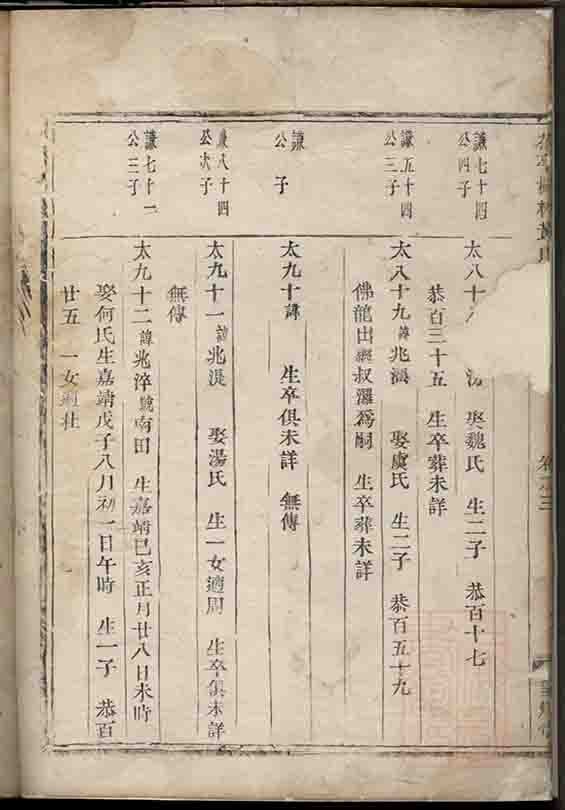 謙七十四
公四子
太八十 娶魏氏 生二子 恭百十七
恭百三十五 生卒葬未詳
謙五十四
公三子
太八十九諱兆 娶虞氏 生二子 恭百五十九
佛龍出繼叔 爲嗣 生卒葬未詳
謙
公 子
太九十諱 生卒俱未詳 無傳
謙八十四
公次子
太九十一諱兆湜 娶湯氏 生一女適周 生卒俱未詳
無傳
謙七十一
公三子
太九十二諱兆淬號南田 生嘉靖己亥正月廿八日未時
娶何氏生嘉靖戊子八月初一日午時 生一子 恭百
廿五 一女適杜